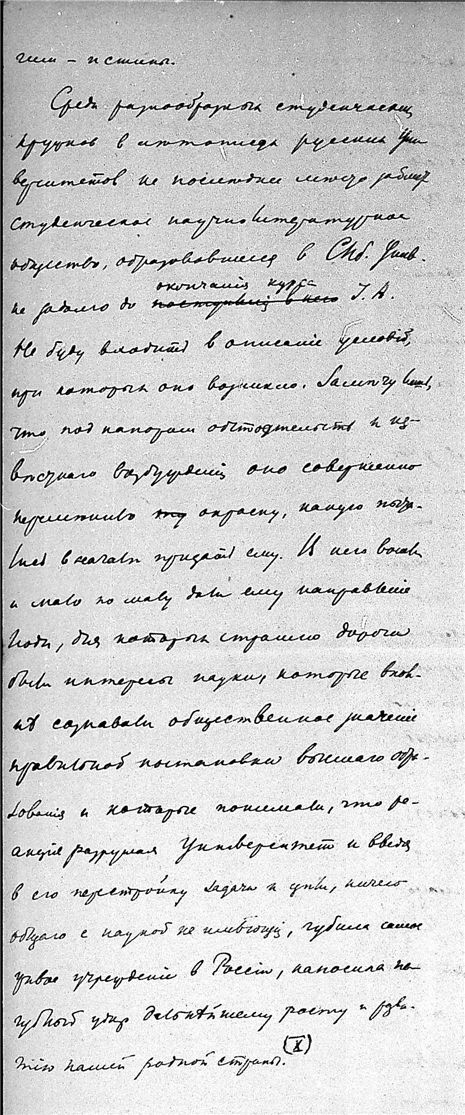 гим – истины.
Среди разнообразных студенческих
кружков в летописях русских Уни
верситетов не последнее место займет
студенческое научно литературное
общество, образовавшееся в СПб. Унив.
не задолго до поступленія в него окончанія курса I. А.
Не буду входить в описаніе условій,
при которых оно возникло. Замечу лишь,
что под напором обстоятельств и из-
вестнаго возбужденія оно совершенно
переменило ту окраску, какую пыта-
лись вначале придать ему. В него вошли
и мало по малу дали ему направленіе
люди, для которых страшно дороги
были интересы науки, которые впол-
нѣ сознавали общественное значеніе
правильной постановки высшаго обра-
зованія и которые понимали, что ре-
акція разрушая Университет и введя
в его перестройку задачи и цели, ничего
общаго с наукой не имѣющія, губила самое
живое учрежденіе в Россіи, наносила па-
губный удар дальнѣйшему росту и разви-
тію нашей родной страны. (X)